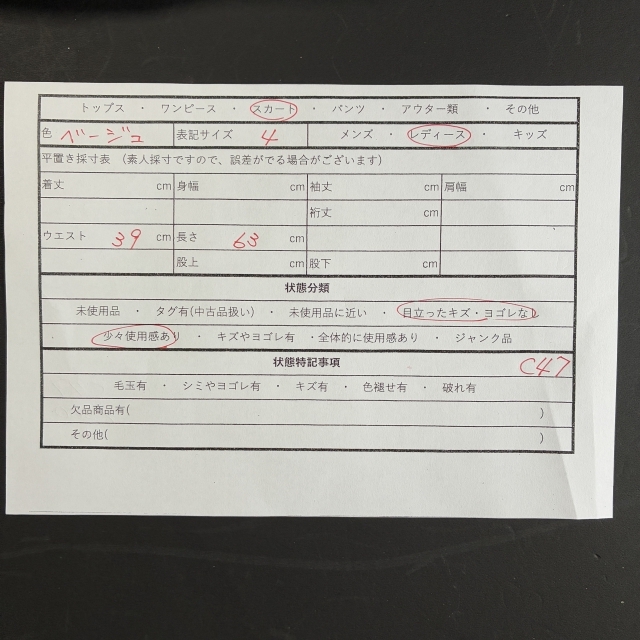 トップス ・ ワンピース ・ スカート ・ パンツ ・ アウター類 ・ その他
色 ベージュ 表記サイズ 4 メンズ ・ レディース ・ キッズ
平置き採寸表 (素人採寸ですので、誤差がでる場合がございます)
着丈 cm 身幅 cm 袖丈 cm 肩幅 cm
裄丈 cm
ウエスト 39 cm 長さ 63 cm
股上 cm 股下 cm
状態分類
未使用品 ・ タグ有(中古品扱い) ・ 未使用品に近い ・ 目立ったキズ・ヨゴレなし
少々使用感あり ・ キズやヨゴレ有 ・全体的に使用感あり ・ ジャンク品
状態特記事項 C47
毛玉有 ・ シミやヨゴレ有 ・ キズ有 ・ 色褪せ有 ・ 破れ有
欠品商品有( )
その他( )